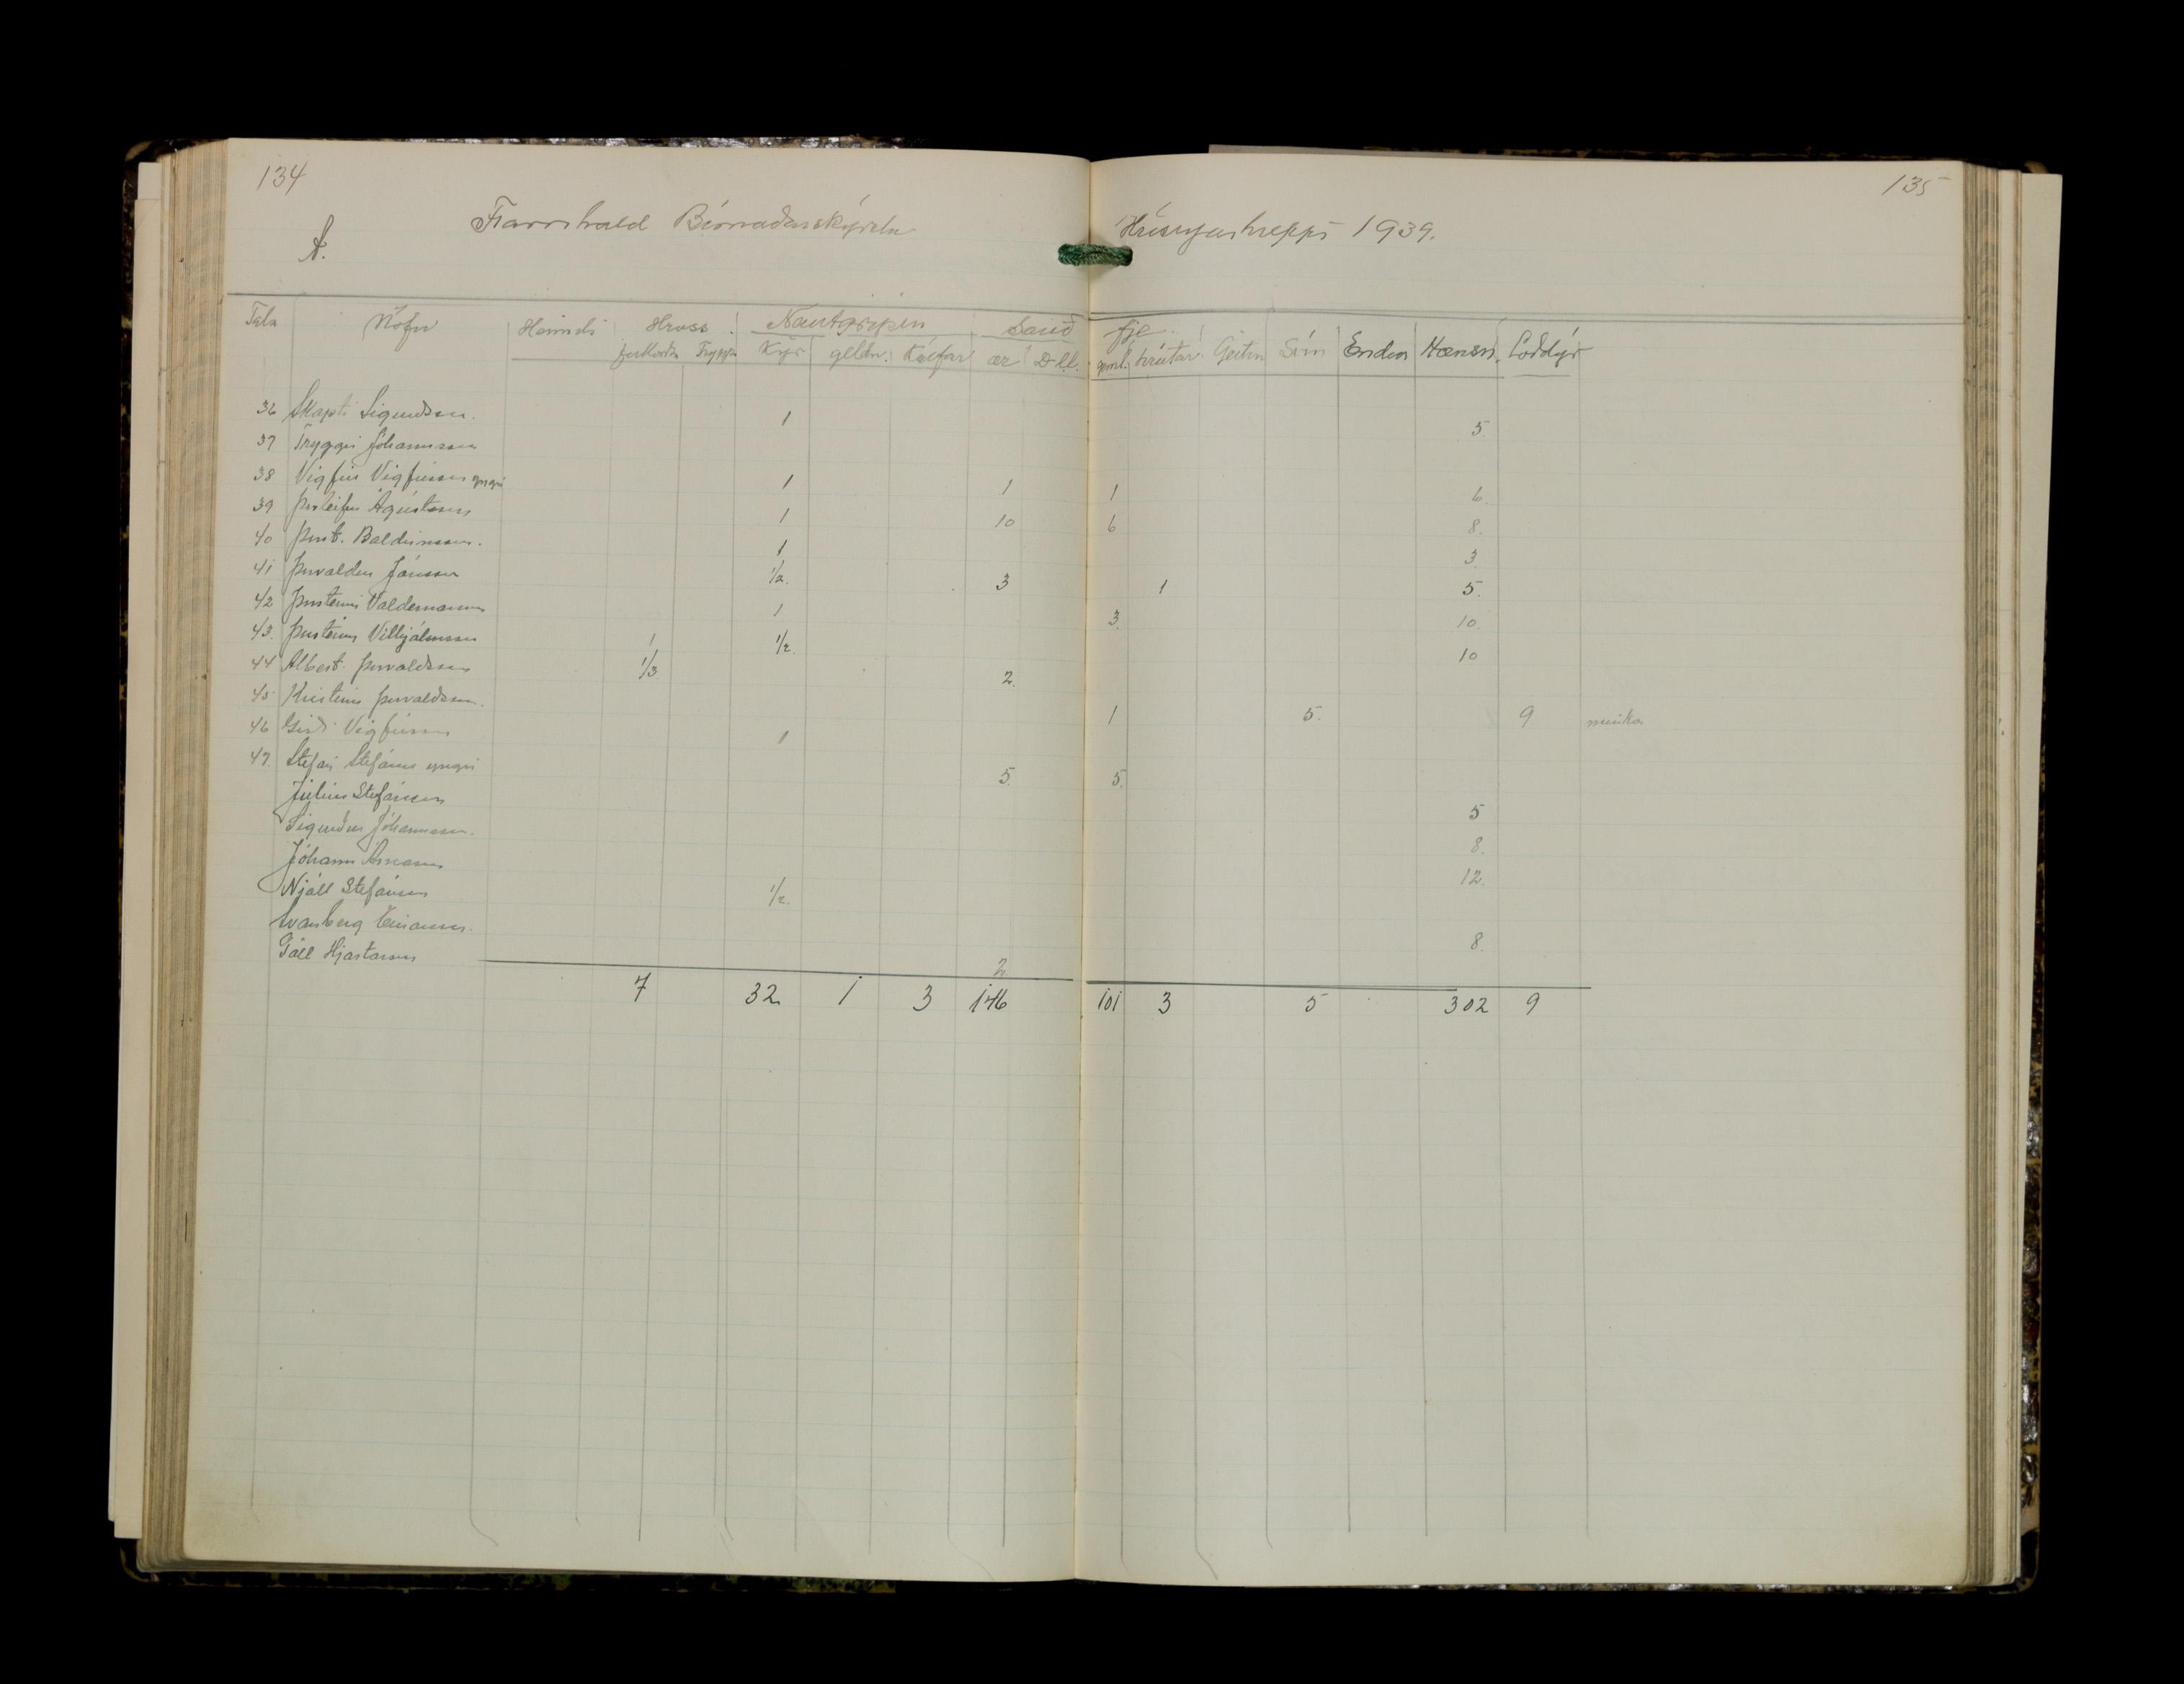 134
135
A.
Framhald Búnaðarskýrslu Hríseyjarhrepps 1939.
Tala Nöfn Heimili Hross. Nautgripir Sauð fje. Geitur Svín Endur Hænsn. Loðdýr
fullorðn Trypp Kýr geldn. Kálfar ær D ll. geml. hrútar
36 Skapti Sigurdsson. 1 5.
37 Tryggvi Jóhannsson
38 Vigfús Vigfússon yngri 1 1 1 6.
39 Þorleifur Ágústsson 1 10 6 8.
40 Þorst. Baldvinsson. 1 3.
41 Þorvaldur Jónsson 1/2. 3 1 5.
42 Þorsteinn Valdemarsson 1 3. 10.
43. Þorsteinn Vilhjálmsson 1 1/2. 10
44 Albert Þorvaldsson 1/3 2.
45 Kristinn Þorvaldsson.
46 Vigfússon 1 1 5. 9 minkar
47. Stefán Stefánss yngri 5. 5.
Júlíus Stefánsson 5
Sigurður Jóhannsson. 8.
Jóhann Árnason 12.
Njáll Stefánsson 1/2.
Svanberg Einarsson. 8.
Páll Hjartarson 2
7 32 1 3 146 101 3 5 302 9